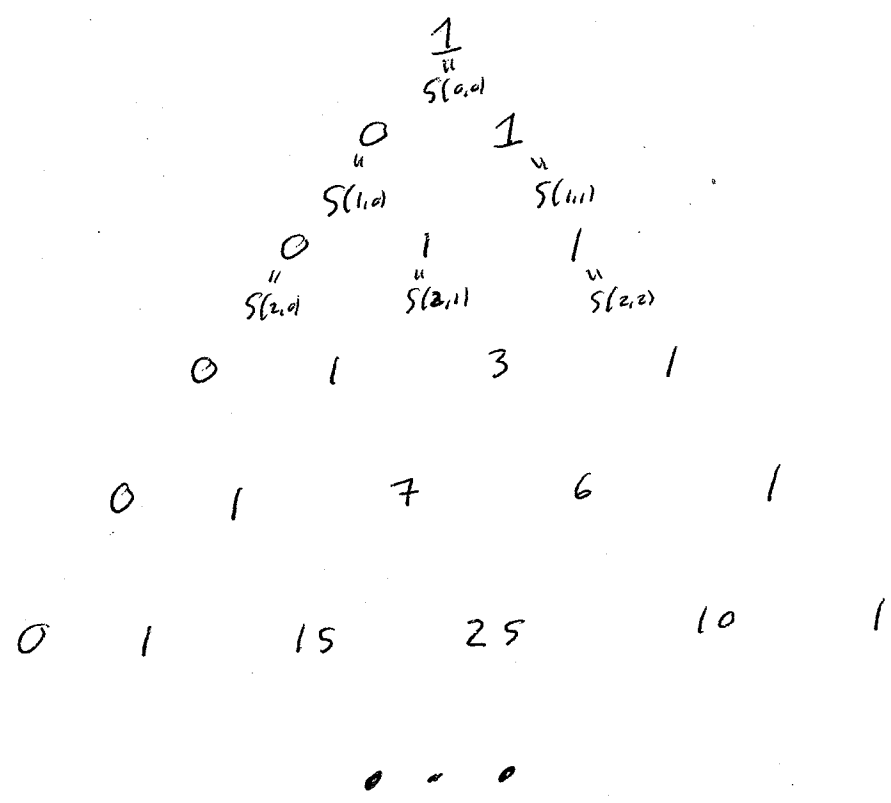 1
=
S(0,0)
0 1
= =
S(1,0) S(1,1)
0 1 1
= = =
S(2,0) S(2,1) S(2,2)
0 1 3 1
0 1 7 6 1
0 1 15 25 10 1
...